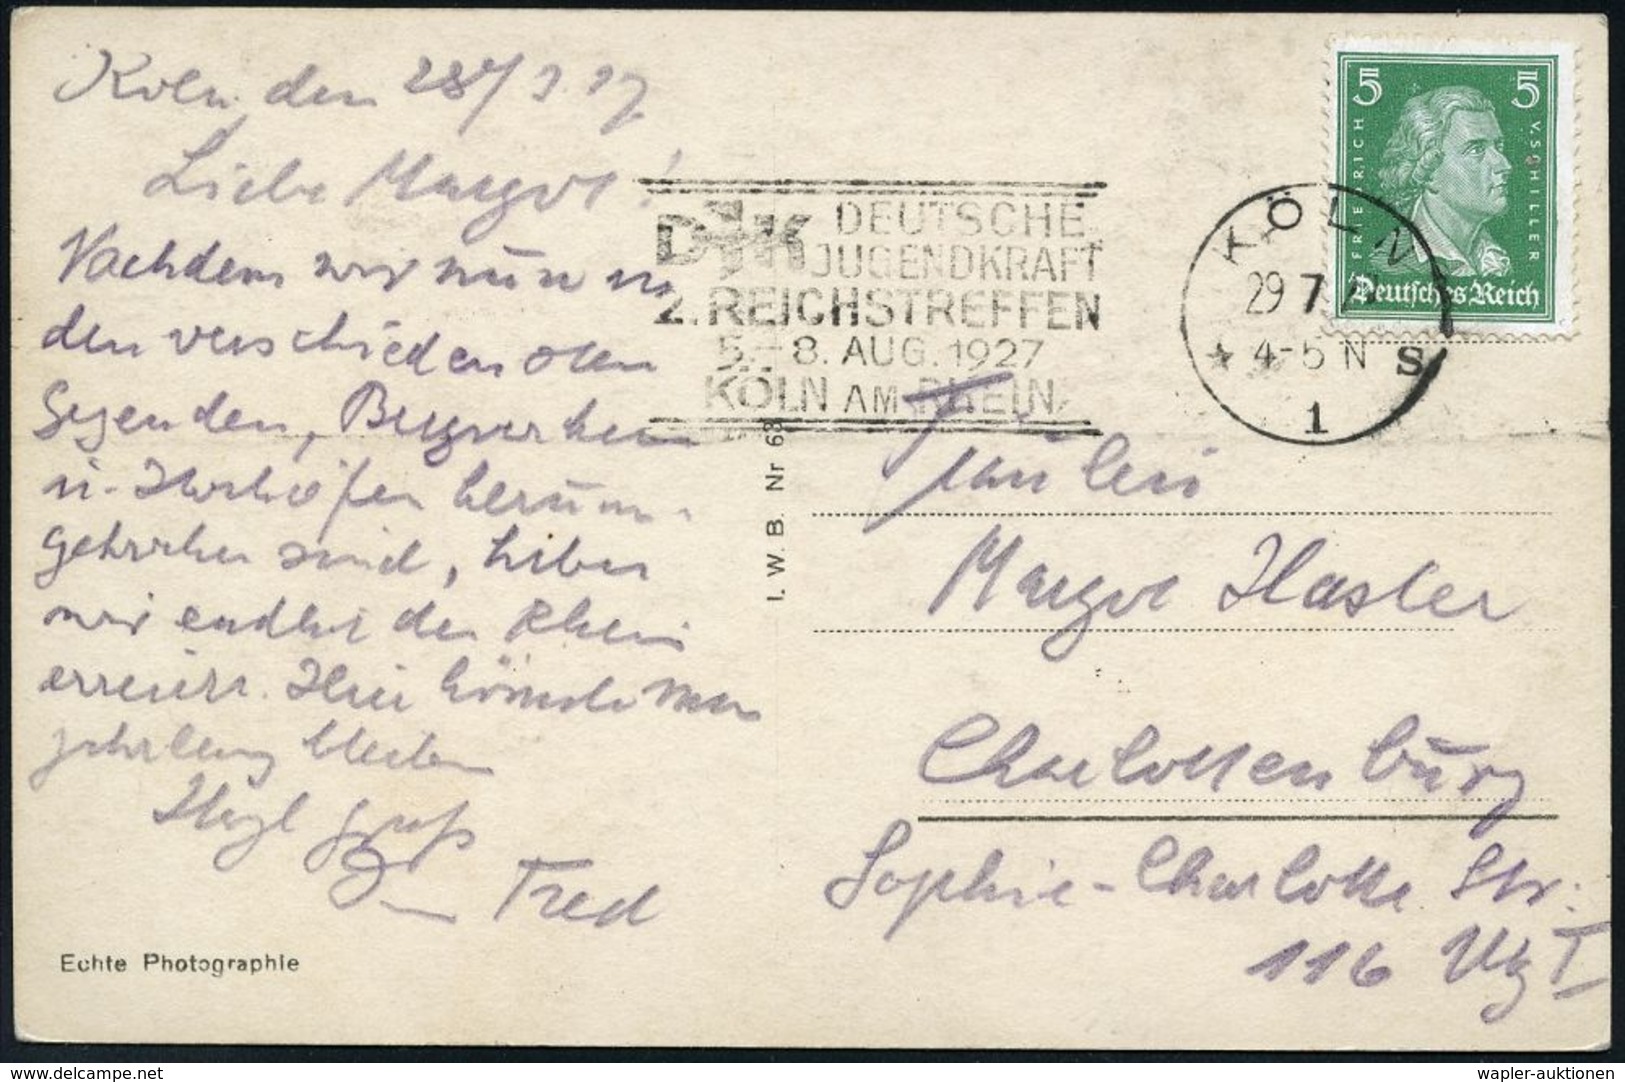 Köln den 28/7.27
Liebe Margot!
Nachdem wir nun in
den verschiedensten
Gegenden, Bergwerken
u. Hochöfen herum-
gekrochen sind, haben
wir endlich den Rhein
erreicht. Hier könnte man
jahrlang bleiben
Herzl Gruß
Fred
Echte Photographie
I. W. B. Nr 68
DJK DEUTSCHE
JUGENDKRAFT
2. REICHSTREFFEN
5.-8. AUG. 1927
KÖLN AM RHEIN
KÖLN
29 7
4-5 N S
1
5 5
FRIEDRICH V. SCHILLER
Deutsches Reich
Fräulein
Margot Hasler
Charlottenburg
Sophie-Charlotte Str.
116
hdphilatelist
wapler-auktionen
www.delcampe.net
wapler-auktionen